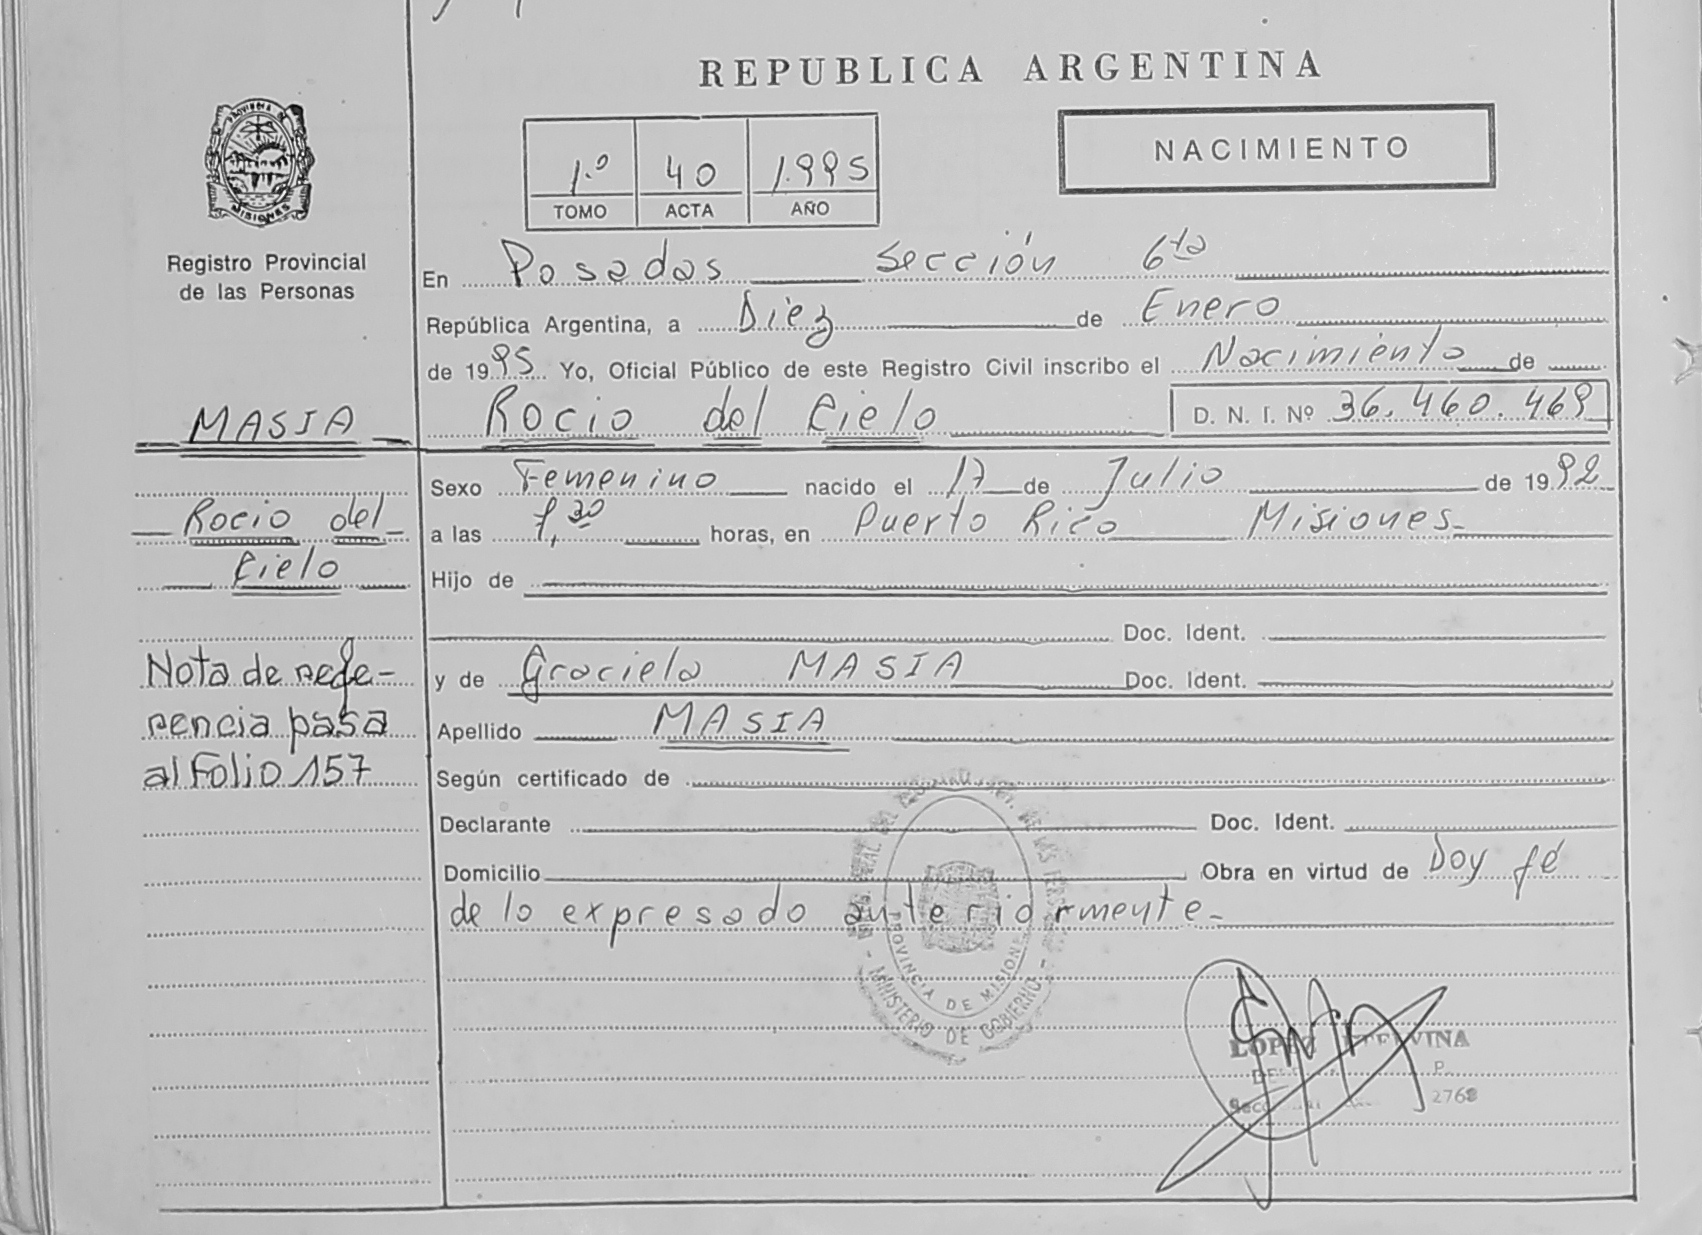 REPUBLICA ARGENTINA
PROVINCIA DE
MISIONES
Registro Provincial
de las Personas
1.º 40 1.995
TOMO ACTA AÑO
NACIMIENTO
En Posadas Sección 6ta
República Argentina, a Diez de Enero
de 1995 Yo, Oficial Público de este Registro Civil inscribo el Nacimiento de
MASIA
Rocio del Cielo D. N. I. Nº 36.460.469
Sexo Femenino nacido el 17 de Julio de 1992
Rocio del
Cielo
a las 1,30 horas, en Puerto Rico Misiones
Hijo de
Doc. Ident.
y de Graciela MASIA Doc. Ident.
Nota de refe-
rencia pasa
al Folio 157
Apellido MASIA
Según certificado de
Declarante Doc. Ident.
Domicilio Obra en virtud de Doy fé
de lo expresado anteriormente-
DE LAS
PROVINCIA DE MISIONES
- MINISTERIO DE GOBIERNO -
LOPEZ
2768